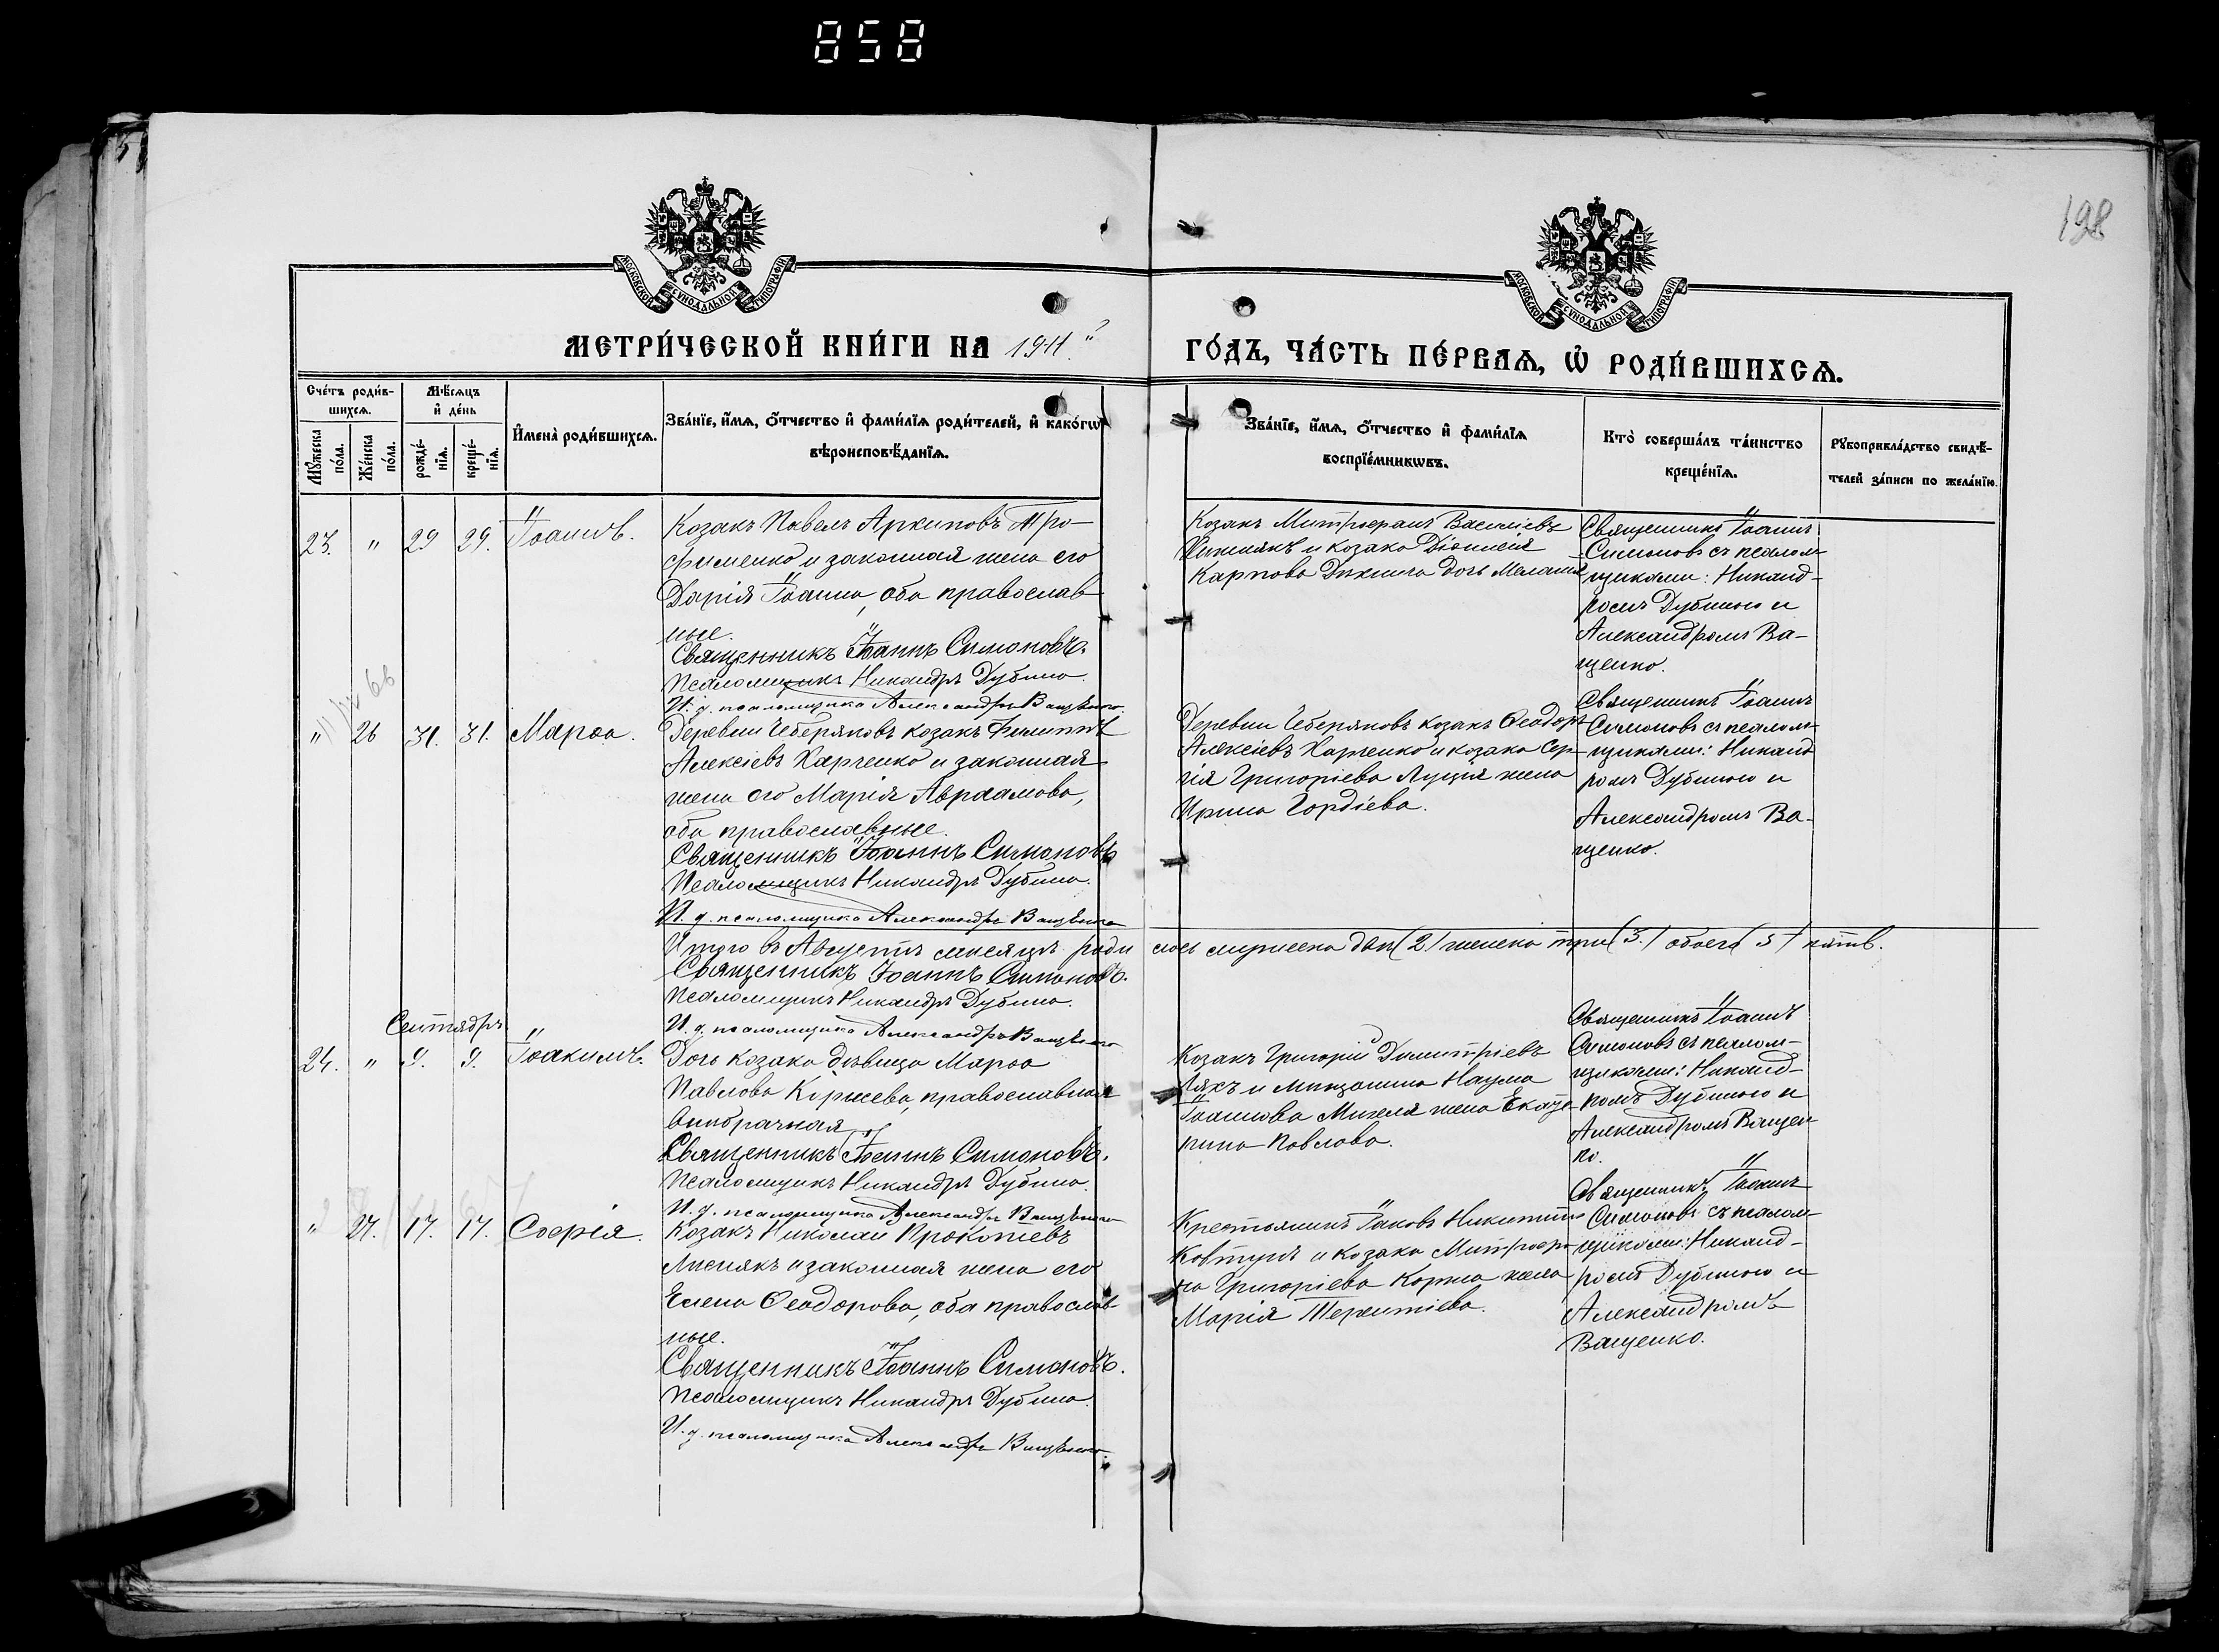 858
198
МОСКОВСКОЙ СѴНОДАЛЬНОЙ ТИПОГРАФІИ
МОСКОВСКОЙ СѴНОДАЛЬНОЙ ТИПОГРАФІИ
МЕТРИ́ЧЕСКОЙ КНИ́ГИ НА 1911.
ГО́ДЪ, ЧА́СТЬ ПЕ́РВАѦ, Ѡ҆ РОДИ́ВШИХСѦ.
Сче́тъ роди́в-
шихсѧ.
Мꙋ́жеска по́ла.
Же́нска по́ла.
Мѣ́сѧцъ
и҆ де́нь
рожде́-
нїѧ.
креще́-
нїѧ.
И҆мена̀ роди́вшихсѧ.
Зва́нїе, и҆́мѧ, ѻ҆́тчество и҆ фами́лїѧ роди́телей, и҆ како́гѡ
вѣроисповѣ́данїѧ.
Зва́нїе, и҆́мѧ, ѻ҆́тчество и҆ фами́лїѧ
воспрїе́мникѡвъ.
Кто̀ соверша́лъ та́инство
креще́нїѧ.
Рꙋкоприкла́дство свидѣ́-
телей за́писи по жела́нїю.
23. " 29 29. Іоаннъ.
Козакъ Павелъ Архиповъ Тро-
фименко и законная жена его
Дарія Іоанна, оба православ
ные.
Священникъ Іоаннъ Симоновъ.
Псаломщикъ Никандръ Дубина.
И. д. псаломщика Александръ Ващенко
Козакъ Митрофанъ Василіевъ
и козака Діонисія
Карпова дочь Меланія
Священникъ Іоаннъ
Симоновъ съ псалом-
щиками: Никанд-
ромъ Дубиною и
Александромъ Ва-
щенко.
" 26 31. 31. Марѳа.
Деревни Чеберяковъ козакъ Филиппъ
Алексіевъ Харченко и законная
жена его Марія Авраамова,
оба православные.
Священникъ Іоаннъ Симоновъ
Псаломщикъ Никандръ Дубина.
И. д. псаломщика Александръ Ващенко
Деревни Чеберяковъ козакъ Ѳеодоръ
Алексіевъ Харченко и козака Сер-
гія Григоріева Луція жена
Ирина Гордіева.
Священникъ Іоаннъ
Симоновъ съ псалом-
щиками: Никанд
ромъ Дубиною и
Александромъ Ва-
щенко.
Итого въ Августѣ мѣсяцѣ роди лось мужеска два (2) женска три (3) обоего (5) пять.
Священникъ Іоаннъ Симоновъ.
Псаломщикъ Никандръ Дубина.
И. д. псаломщика Александръ Ващенко
Сентябрь
24. " 9. 9. Іоакимъ.
Дочь козака дѣвица Марѳа
Павлова Коржева, православная
внѣбрачная
Священникъ Іоаннъ Симоновъ.
Псаломщикъ Никандръ Дубина.
И. д. псаломщика Александръ Ващенко
Козакъ Григорій Димитріевъ
Ляхъ и мѣщанина Наума
Іоаннова жена Екате-
рина Павлова.
Священникъ Іоаннъ
Симоновъ съ псалом-
щиками: Никанд-
ромъ Дубиною и
Александромъ Ващен
ко.
" 27. 17. 17. Софія.
Козакъ Николай Прокопіевъ
Лиснякъ и законная жена его
Елена Ѳеодорова, оба православ
ные.
Священникъ Іоаннъ Симоновъ.
Псаломщикъ Никандръ Дубина.
И. д. псаломщика Александръ Ващенко
Крестьянинъ Іаковъ Никитинъ
Ковтунъ и козака Митрофа-
на Григоріева Коржа жена
Марія Терентіева.
Священникъ Іоаннъ
Симоновъ съ псалом-
щиками: Никанд-
ромъ Дубиною и
Александромъ
Ващенко.